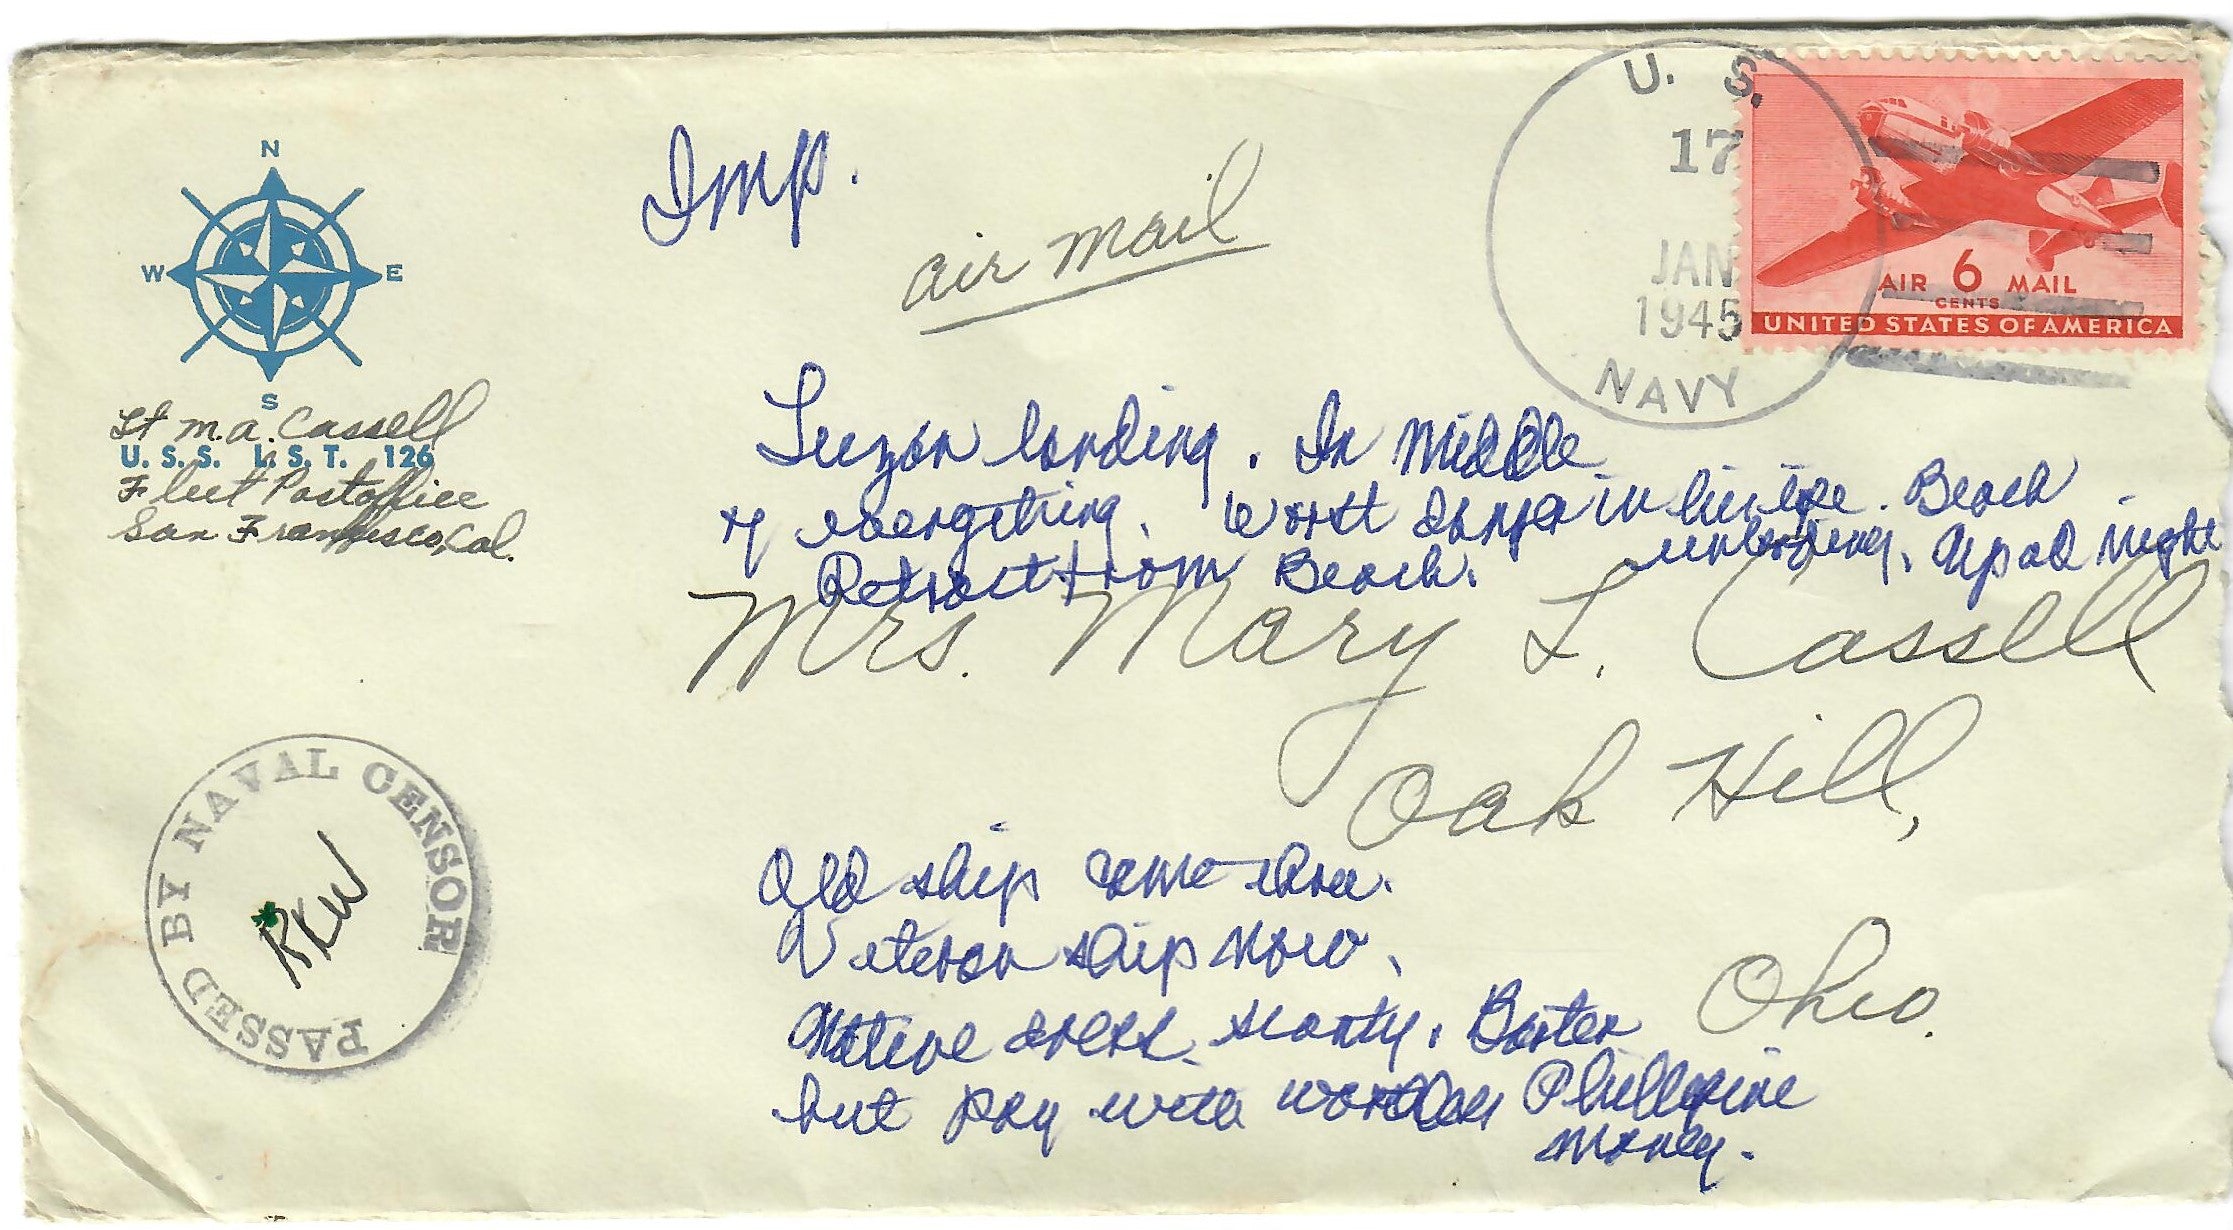 N
W E
S
Lt M.A. Cassell
U.S.S. L.S.T. 126
Fleet Postoffice
San Francisco, Cal.
Imp.
air mail
U. S.
17
JAN
1945
NAVY
AIR 6 MAIL
CENTS
UNITED STATES OF AMERICA
Luzon landing. In Middle
of everything. Worst danger in life. Beach
unloading. Up all night
Retract from Beach.
Mrs. Mary L. Cassell
Oak Hill,
Ohio.
PASSED BY NAVAL CENSOR
RKW
Old ship came thru.
Veteran ship now.
Native dress scanty. Barter
but pay with worthless Phillipine
money.